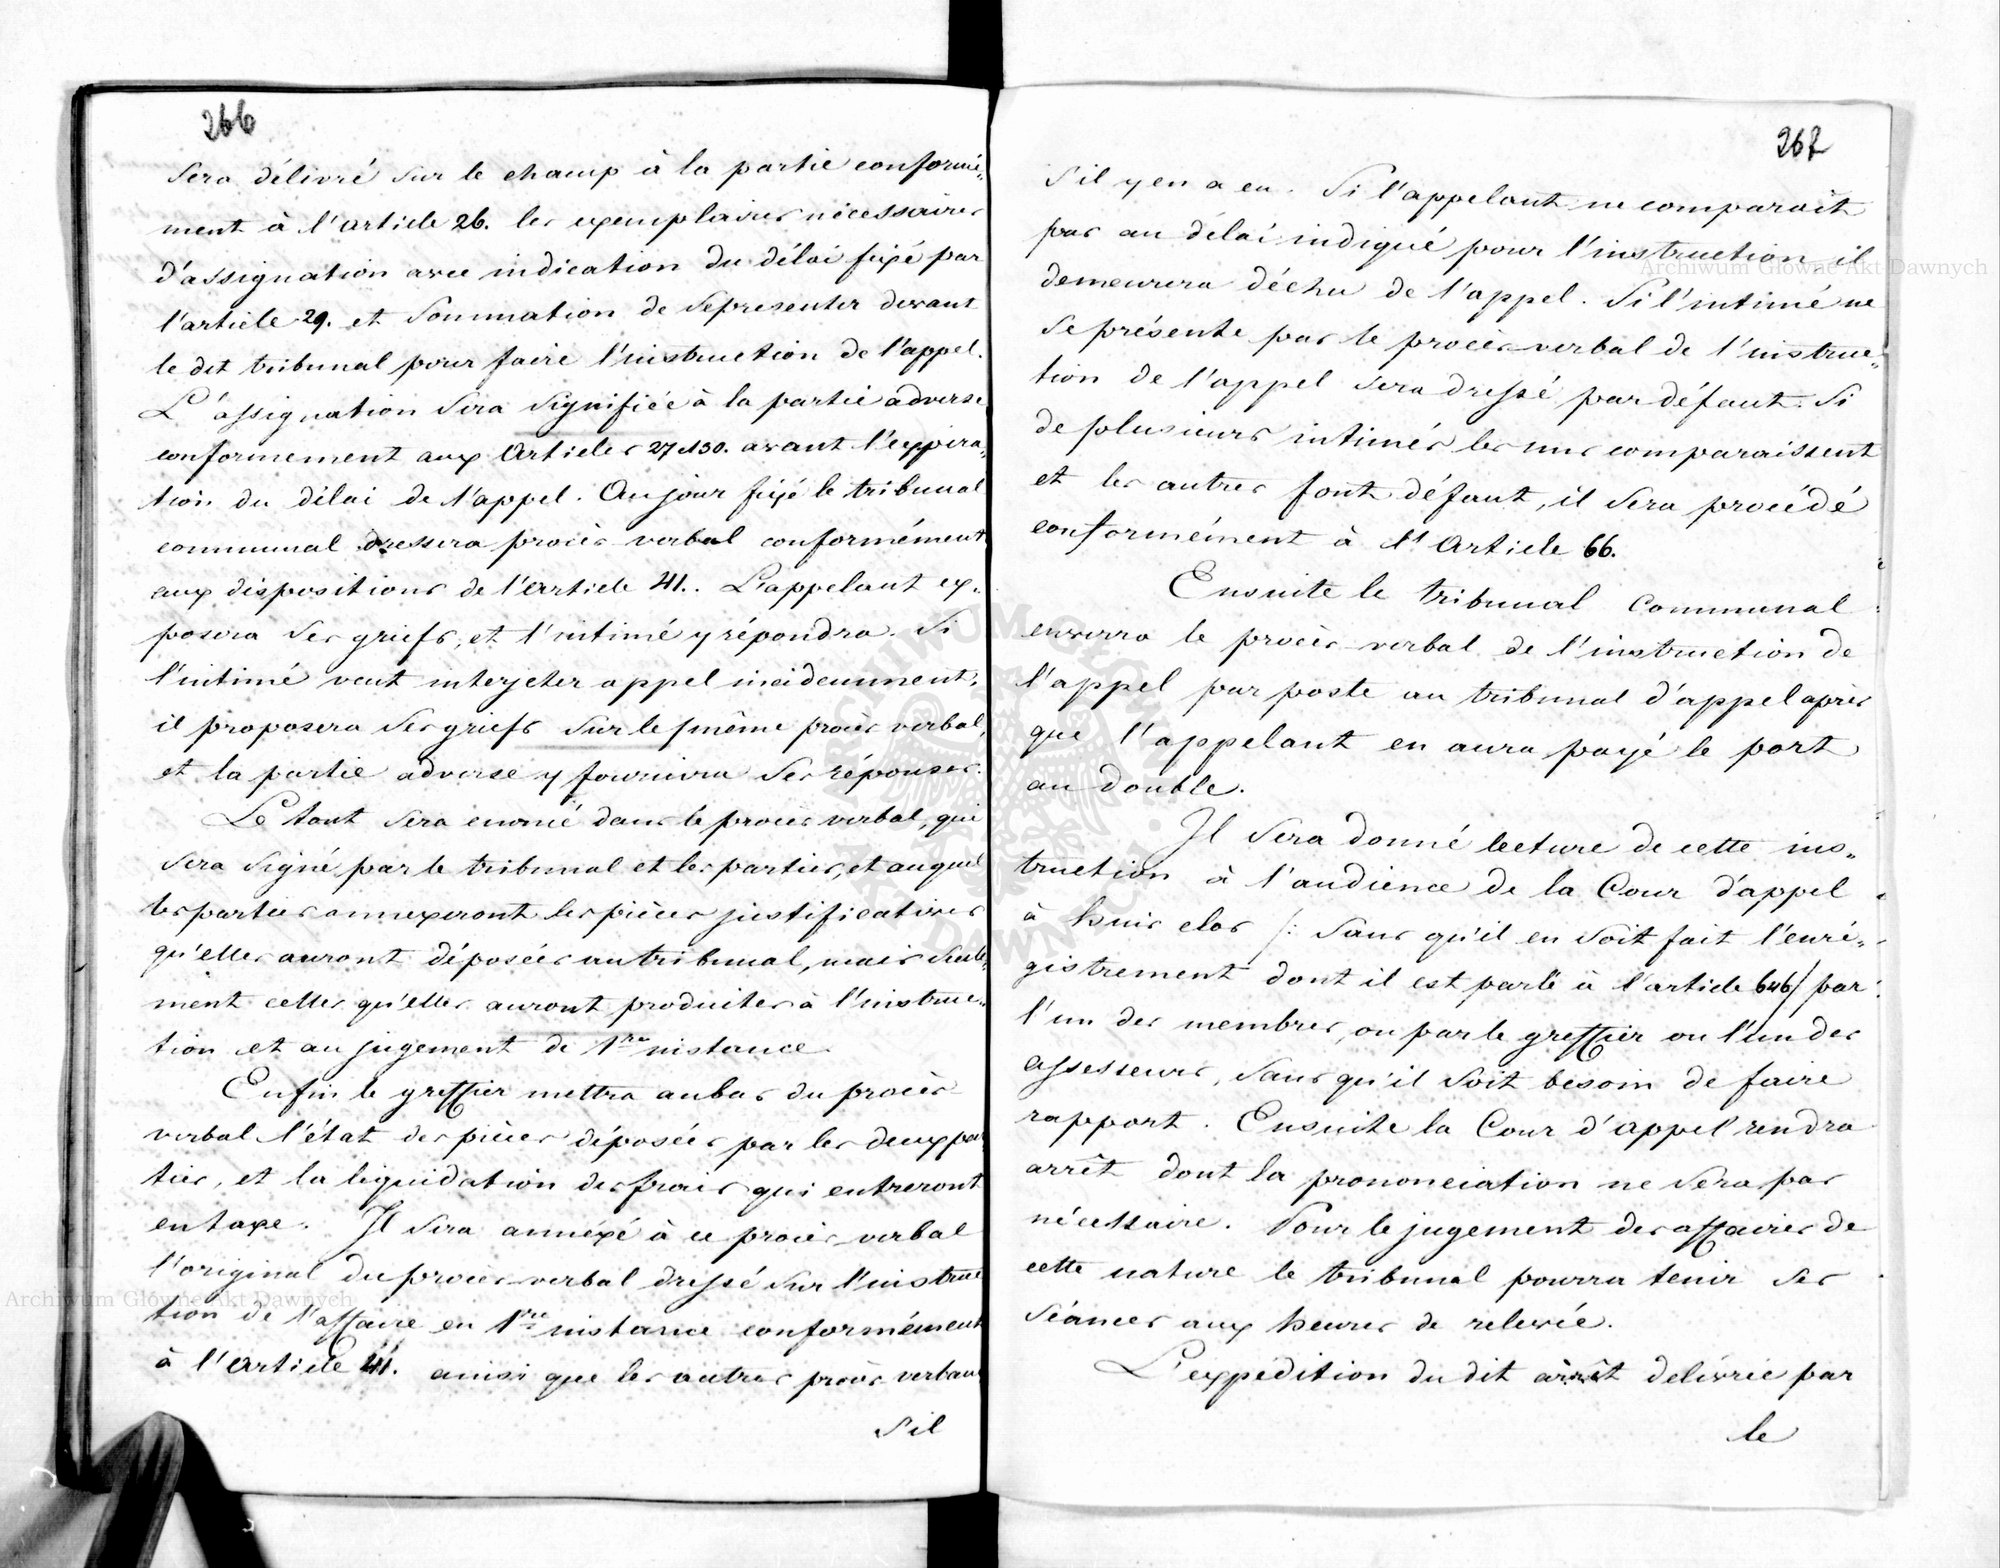 266
sera délivré sur le champ à la partie conformé-
ment à l'article 26. les exemplaires nécessaires
d'assignation avec indication du délai fixé par
l'article 29. et sommation de se presenter devant
le dit tribunal pour faire l'instruction de l'appel.
L'assignation sera signifiée à la partie adverse
conformement aux Articles 27 et 30. avant l'expira-
tion du délai de l'appel. Au jour fixé le tribunal
communal dressera procès verbal conformément
aux dispositions de l'Article 41.. L'appelant ex-
posera ses griefs, et l'intimé y répondra. Si
l'intimé veut interjeter appel incidemment,
il proposera ses griefs sur le même procès verbal,
et la partie adverse y fournira ses réponses.
Le tout sera énoncé dans le procès verbal, qui
sera signé par le tribunal et les parties, et auquel
les parties annexeront les pièces justificatives
qu'elles auront déposées au tribunal, mais seule-
ment celles qu'elles auront produites à l'instruc-
tion et au jugement de 1re instance.
Enfin le greffier mettra au bas du procès-
verbal l'état des pièces déposées par les deux par
ties, et la liquidation des frais qui entreront
en taxe. Il sera annéxé à ce procès-verbal
l'original du procès-verbal dressé sur l'instruc
tion de l'affaire en 1re instance conformément
à l'Article 41. ainsi que les autres procès verbaux
s'il
267
s'il y en a eu. Si l'appelant ne comparaît
pas au délai indiqué pour l'instruction, il
demeurera déchu de l'appel. Si l'intimé ne
se présente pas le procès-verbal de l'instruc-
tion de l'appel sera dressé par défaut. Si
de plusieurs intimés les uns comparaissent
et les autres font défaut, il sera procédé
conformément à l'Article 66.
Ensuite le tribunal communal
enverra le procès-verbal de l'instruction de
l'appel par poste au tribunal d'appel après
que l'appelant en aura payé le port
au double.
Il sera donné lecture de cette ins-
truction à l'audience de la Cour d'appel
à huis clos /: sans qu'il en soit fait l'enré-
gistrement dont il est parlé à l'article 646/ par
l'un des membres, ou par le greffier ou l'un des
assesseurs, sans qu'il soit besoin de faire
rapport. Ensuite la Cour d'appel rendra
arrêt dont la prononciation ne sera pas
nécessaire. Pour le jugement des affaires de
cette nature le tribunal pourra tenir ses
séances aux heures de relevée.
L'expédition du dit arrêt delivrée par
le
Archiwum Główne Akt Dawnych
Archiwum Główne Akt Dawnych
ARCHIWUM GŁÓWNE AKT DAWNYCH